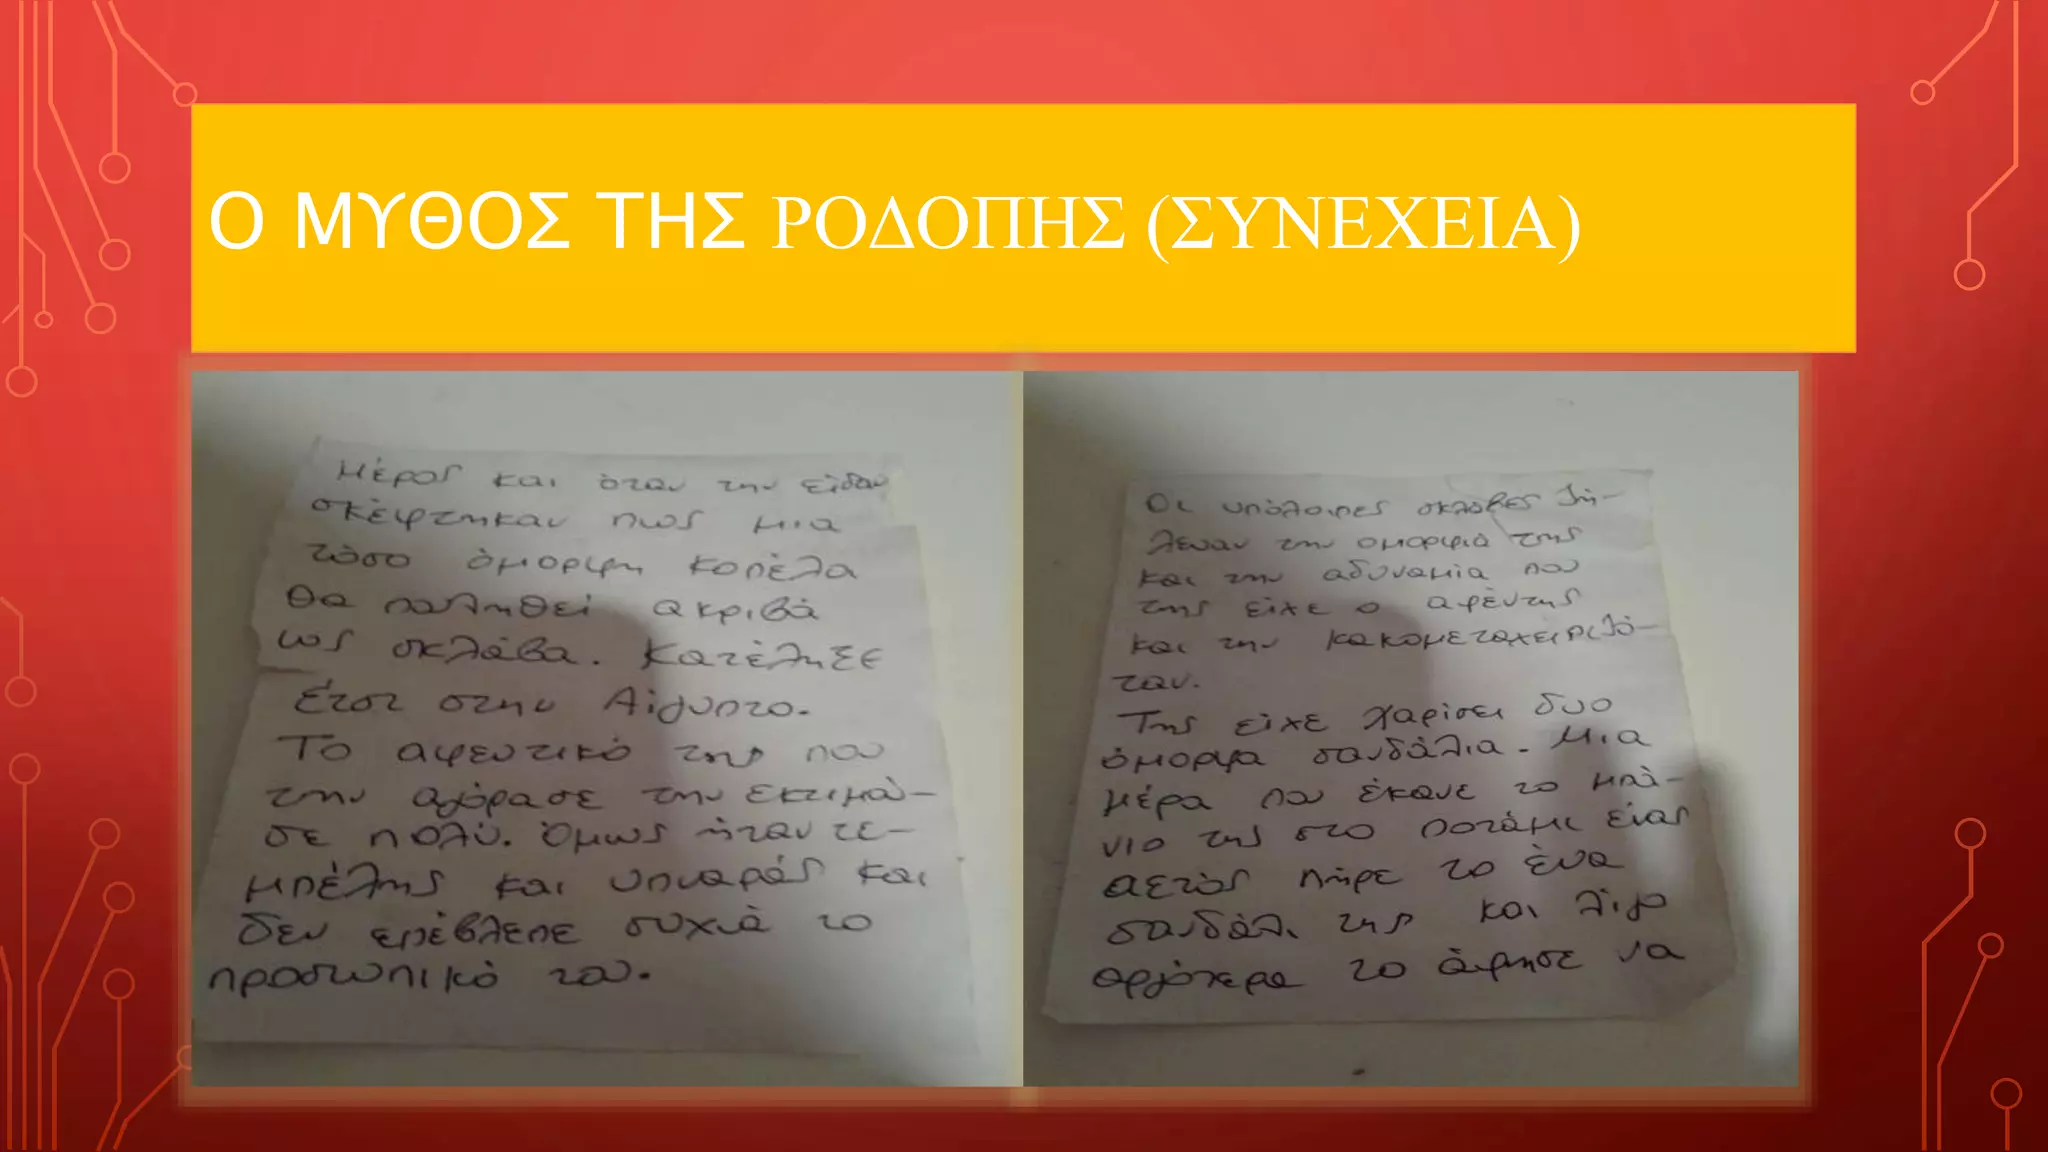 Ο ΜΥΘΟΣ ΤΗΣ ΡΟΔΟΠΗΣ (ΣΥΝΕΧΕΙΑ)
μέρος και όταν την είδαν
σκέφτηκαν πως μια
τόσο όμορφη κοπέλα
θα πουληθεί ακριβά
ως σκλάβα. Κατέληξε
έτσι στην Αίγυπτο.
Το αφεντικό της που
την αγόρασε την εκτιμού-
σε πολύ. Όμως ήταν τε-
μπέλης και υπναράς και
δεν επέβλεπε συχνά το
προσωπικό του.
Οι υπόλοιπες σκλάβες ζή-
λευαν την ομορφιά της
και την αδυναμία που
της είχε ο αφέντης
και την κακομεταχειριζό-
ταν.
Της είχε χαρίσει δυο
όμορφα σανδάλια. Μια
μέρα που έκανε το μπά-
νιο της στο ποτάμι ένας
αετός πήρε το ένα
σανδάλι της και λίγο
αργότερα το άφησε να